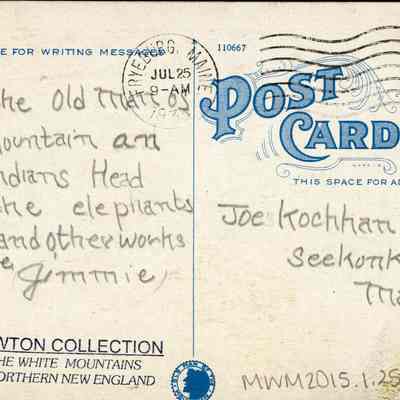 E FOR WRITING MESSAGES
110667
RYEBURG, MAINE
JUL 25
9-AM
POST
CARD
THIS SPACE FOR AD
he Old Man of
ountain an
ndians Head
he elephants
and other works
Jimmie
Joe Kochhan
Seekonk
Ma
WTON COLLECTION
HE WHITE MOUNTAINS
ORTHERN NEW ENGLAND
OLD MAN OF THE
MWM2015.1.25